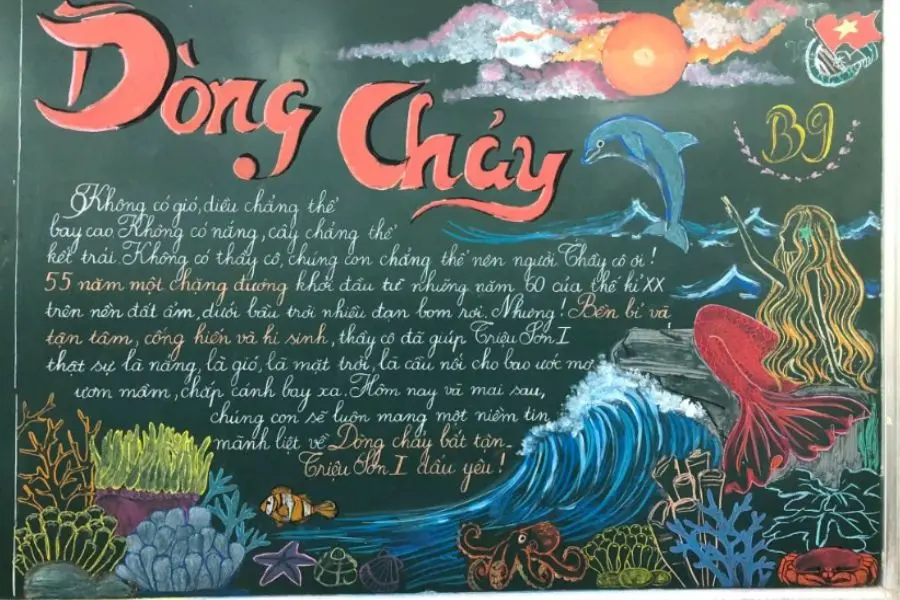 Dòng Chảy
B9
Không có gió, diều chẳng thể
bay cao. Không có nắng, cây chẳng thể
kết trái. Không có thầy cô, chúng con chẳng thể nên người. Thầy cô ơi!
55 năm một chặng đường khởi đầu từ những năm 60 của thế kỉ XX
trên nền đất ẩm, dưới bầu trời nhiều đạn bom rơi. Nhưng! Bền bỉ và
tận tâm, cống hiến và hi sinh, thầy cô đã giúp Triệu Sơn I
thật sự là nắng, là gió, là mặt trời, là cầu nối cho bao ước mơ
ươm mầm, chắp cánh bay xa. Hôm nay và mai sau,
chúng con sẽ luôn mang một niềm tin
mãnh liệt về Dòng chảy bất tận -
Triệu Sơn I dấu yêu!